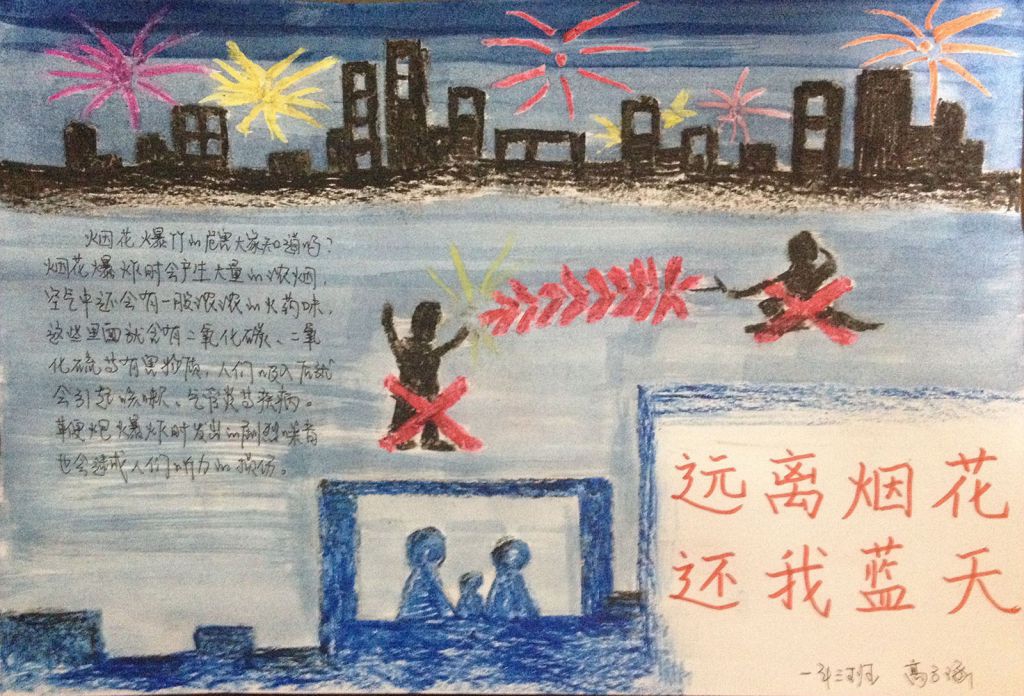 烟花爆竹的危害大家知道吗?
烟花爆炸时会产生大量的浓烟,
空气中还会有一股浓浓的火药味,
这些里面就含有二氧化碳、二氧
化硫等有害物质,人们吸入后就
会引起咳嗽、气管炎等疾病。
鞭炮爆炸时发出的剧烈噪音
也会造成人们听力的损伤。
远离烟花
还我蓝天
一年三班 高子涵